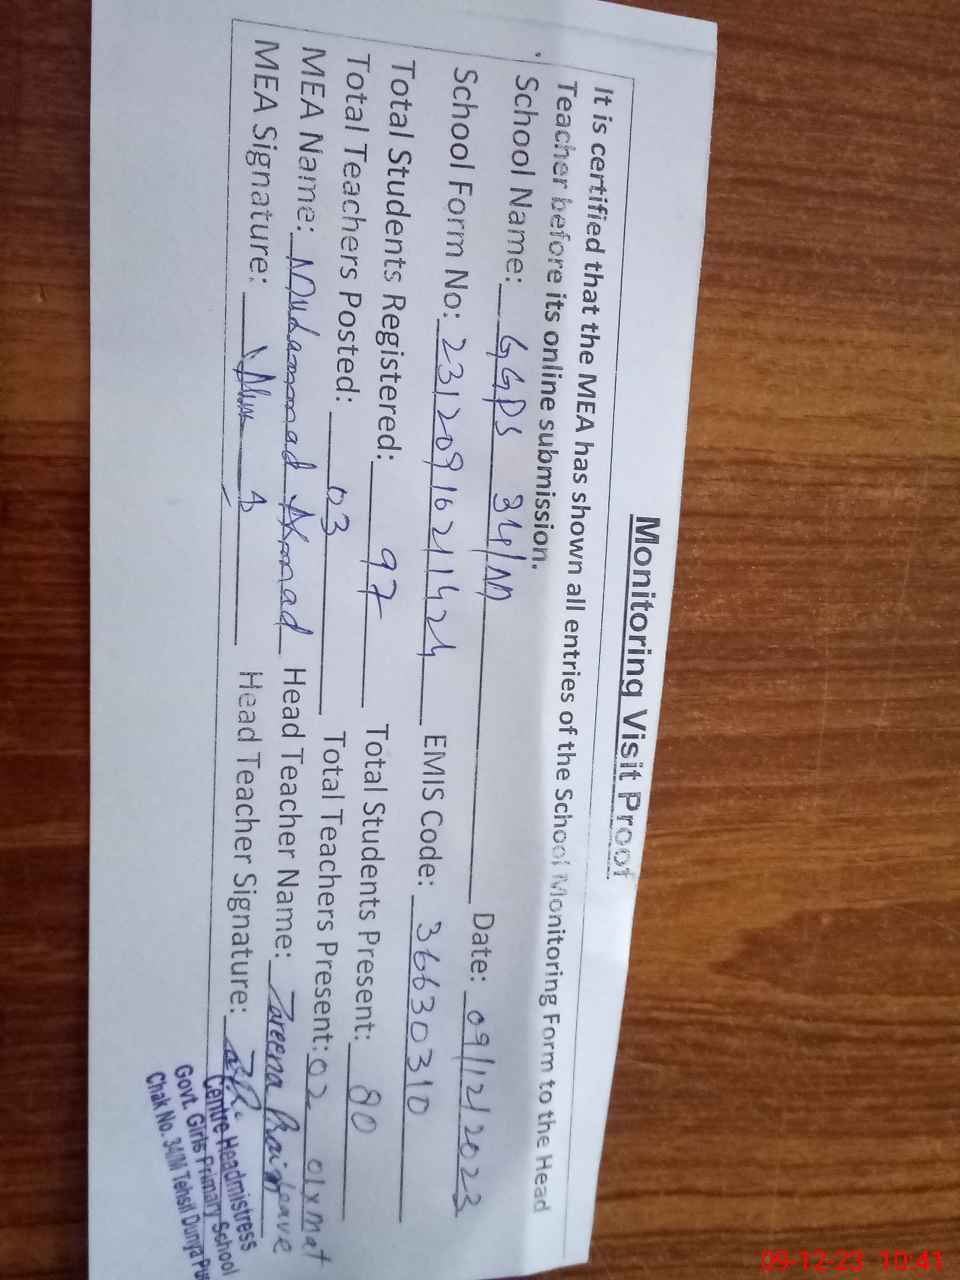 Monitoring Visit Proof
It is certified that the MEA has shown all entries of the School Monitoring Form to the Head
Teacher before its online submission.
School Name: GGPS 34/M Date: 09/12/2023
School Form No: 23120916211424 EMIS Code: 36630310
Total Students Registered: 97 Total Students Present: 80
Total Teachers Posted: 03 Total Teachers Present: 02 01 x Mat
leave
MEA Name: Muhammad Ahmad Head Teacher Name: Zareena
MEA Signature: Head Teacher Signature:
Centre Headmistress
Govt. Girls Primary School
Chak No. 34/M Tehsil Dunya Pur
09-12-23 10:41